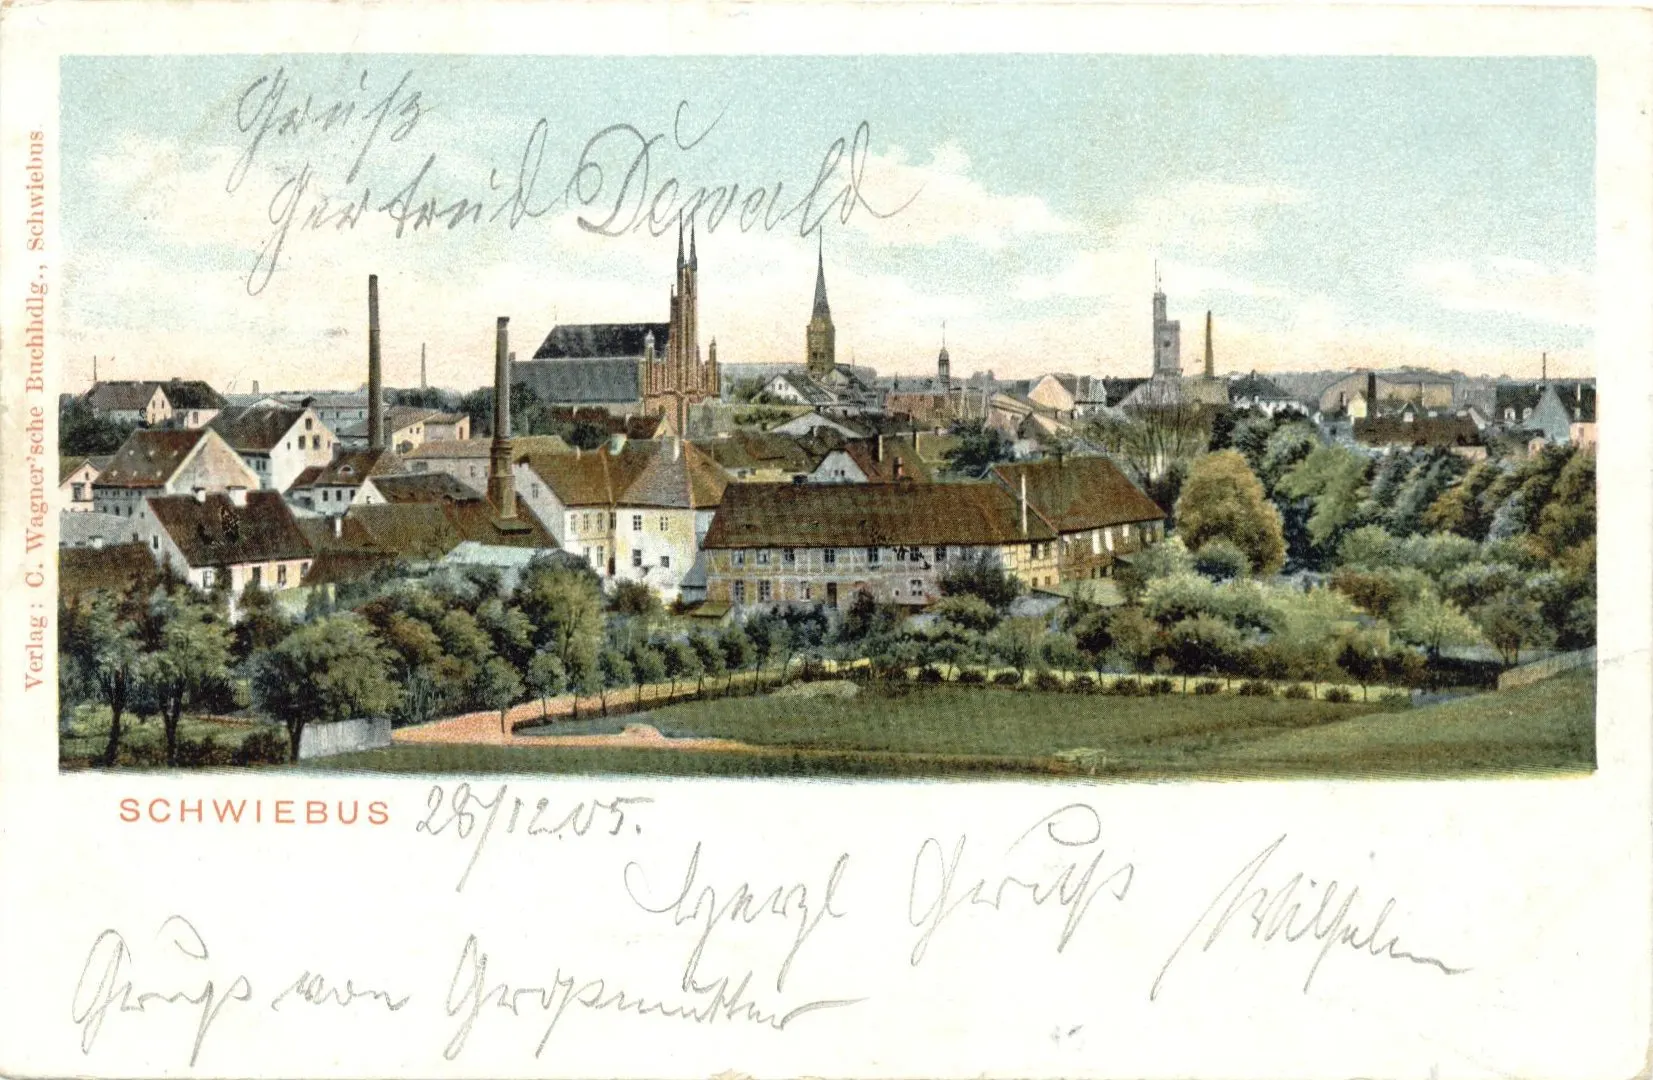 Gruß
Gertrud Dewald
Verlag: C. Wagner'sche Buchhdlg., Schwiebus
SCHWIEBUS 28/12.05.
Herzl Gruß Wilhelm
Gruß von Großmutter